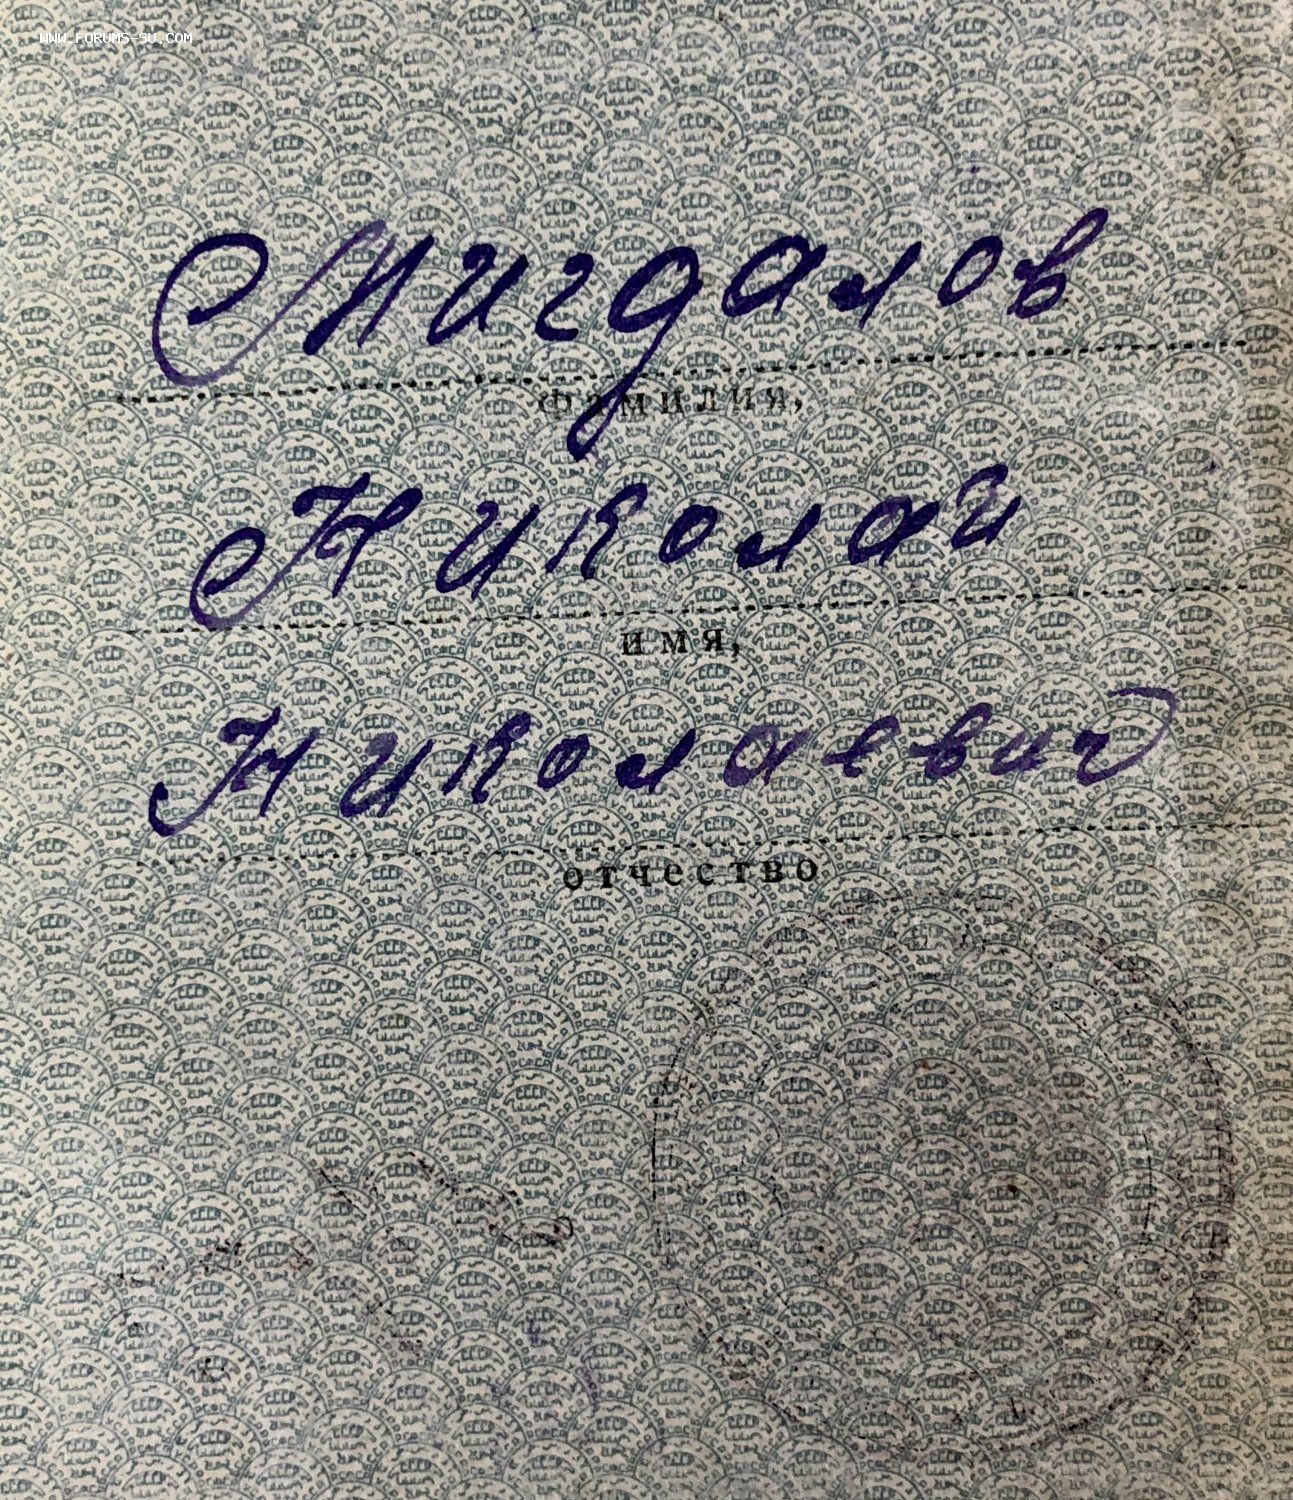 WWW.FORUMS-SU.COM
Мигдалов
фамилия,
Николай
имя,
Николаевич
отчество